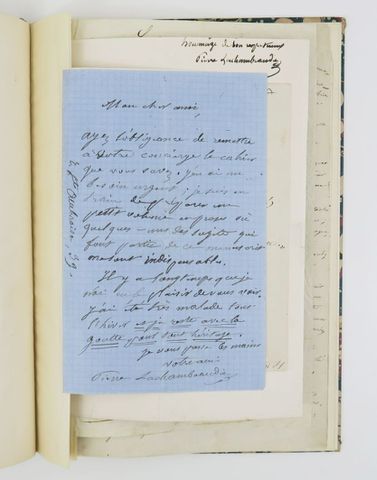 hommage de bon respectueux
Pierre Lachambeaudie
Mon cher ami,
ayez l'obligeance de remettre
à votre concierge le cahier
que vous savez. j'en ai un
besoin urgent; je suis en
train de préparer un
petit volume en prose où
quelques-uns des sujets qui
font partie de ce manuscrit
me sont indispensables.
Il y a longtemps que je
n'ai eu le plaisir de vous voir.
j'ai été très malade tout
l'hiver et je reste avec la
goutte pour tout héritage.
je vous serre les mains
votre ami
Pierre Lachambeaudie
39.